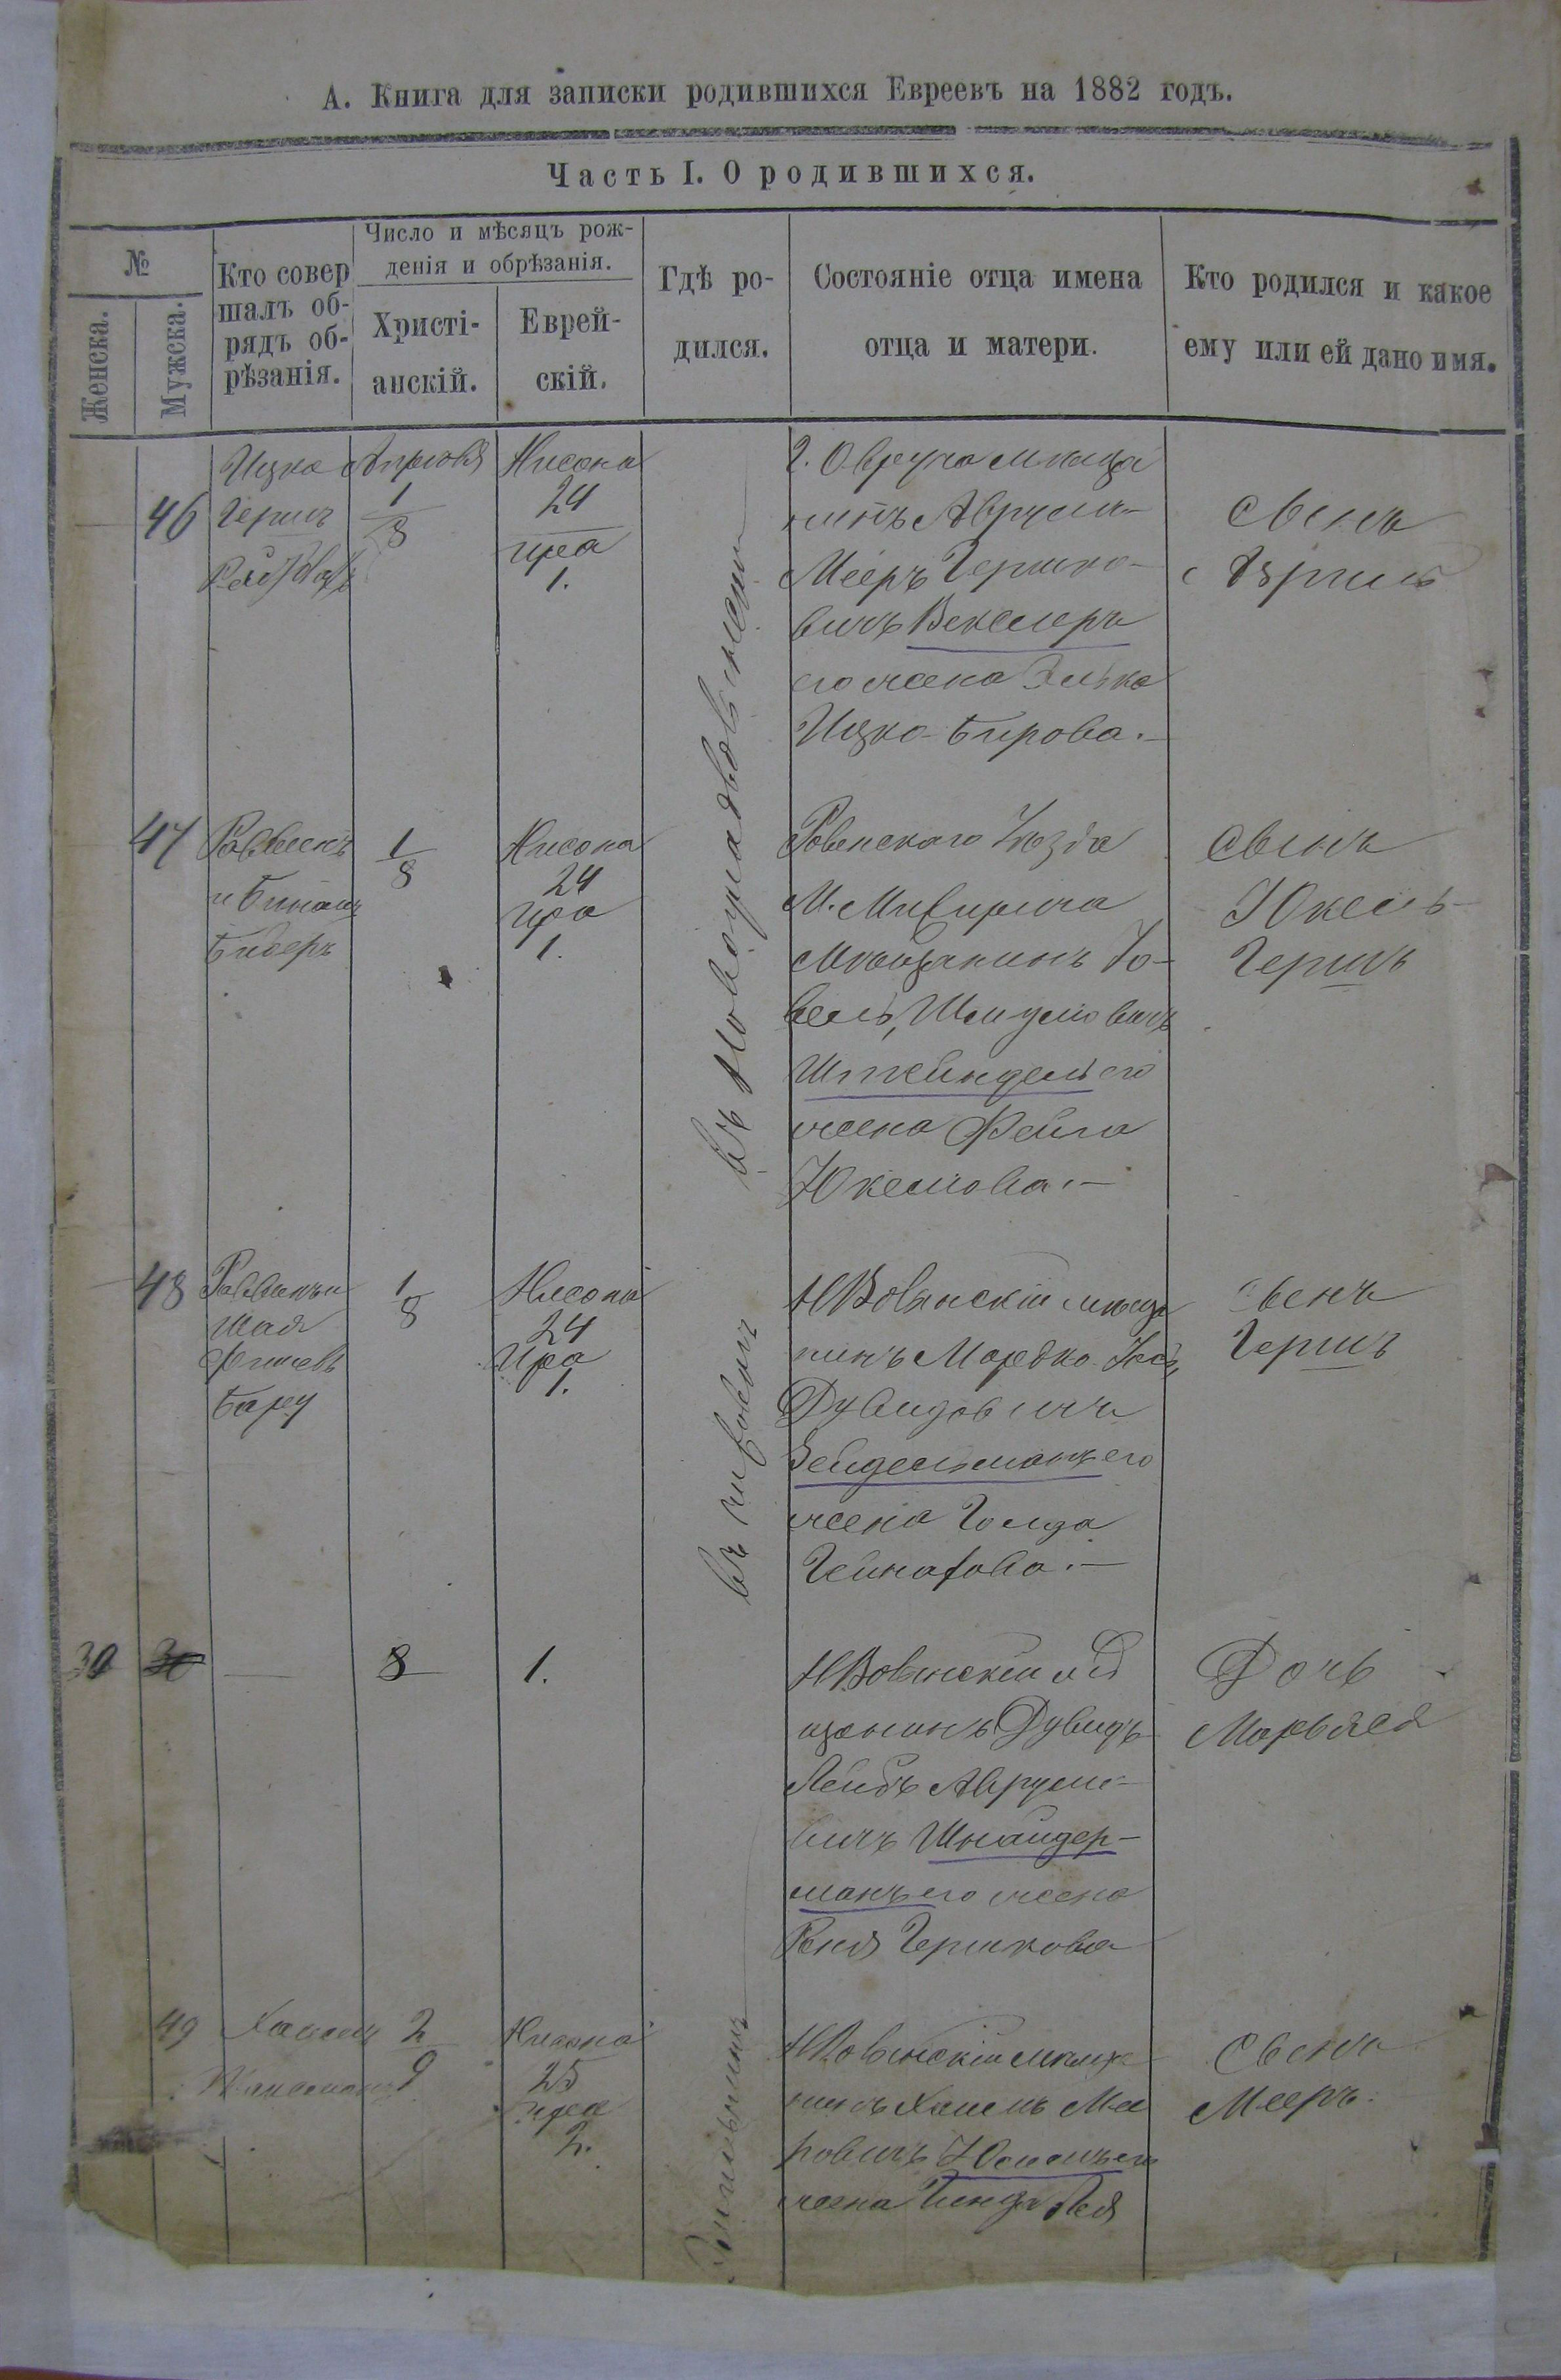 А. Книга для записки родившихся Евреевъ на 1882 годъ.
Часть I. О родившихся.
№
Женска.
Мужска.
Кто совер
шалъ об-
рядъ об-
рѣзанія.
Число и мѣсяцъ рож-
денія и обрѣзанія.
Христі-
анскій.
Еврей-
скій.
Гдѣ ро-
дился.
Состояніе отца имена
отца и матери.
Кто родился и какое
ему или ей дано имя.
46
Ицко
Гершъ
Апрѣля
1
8
Нисона
24
Ира
1.
Г. Овруча мѣща
нинъ Аврумъ-
Мееръ Гершко-
вичъ Векслеръ
его жена Элька
Ицко-Берова.-
Сынъ
въ Новоградволынске
47
и
1
8
Нисона
24
Ира
1.
Ровенскаго Уѣзда
М. Межирича
Мѣщанинъ Іо-
вель Шмулёвичъ
Штейндель его
жена Фейга
Юкелёва.-
Сынъ
Юкель-
Гершъ
48
Шая
1
8
Нисона
24
Ира
1.
НВолынскій мѣща
нинъ Мордко Іосъ
Дувидовичъ
Зейдельманъ его
жена Голда
Сынъ
Гершъ
30
30
8
1.
НВолынскій мѣ
щанинъ Дувидъ-
Лейбъ Аврумо-
вичъ Шнайдер-
манъ его жена
Рейзя Гершкова
Дочь
Марьяся
49
2
9
Нисона
25
Ира
2.
НВолынскій мѣща
нинъ Хаимъ Ме
ровичъ
жена
Лея
Сынъ
Мееръ.